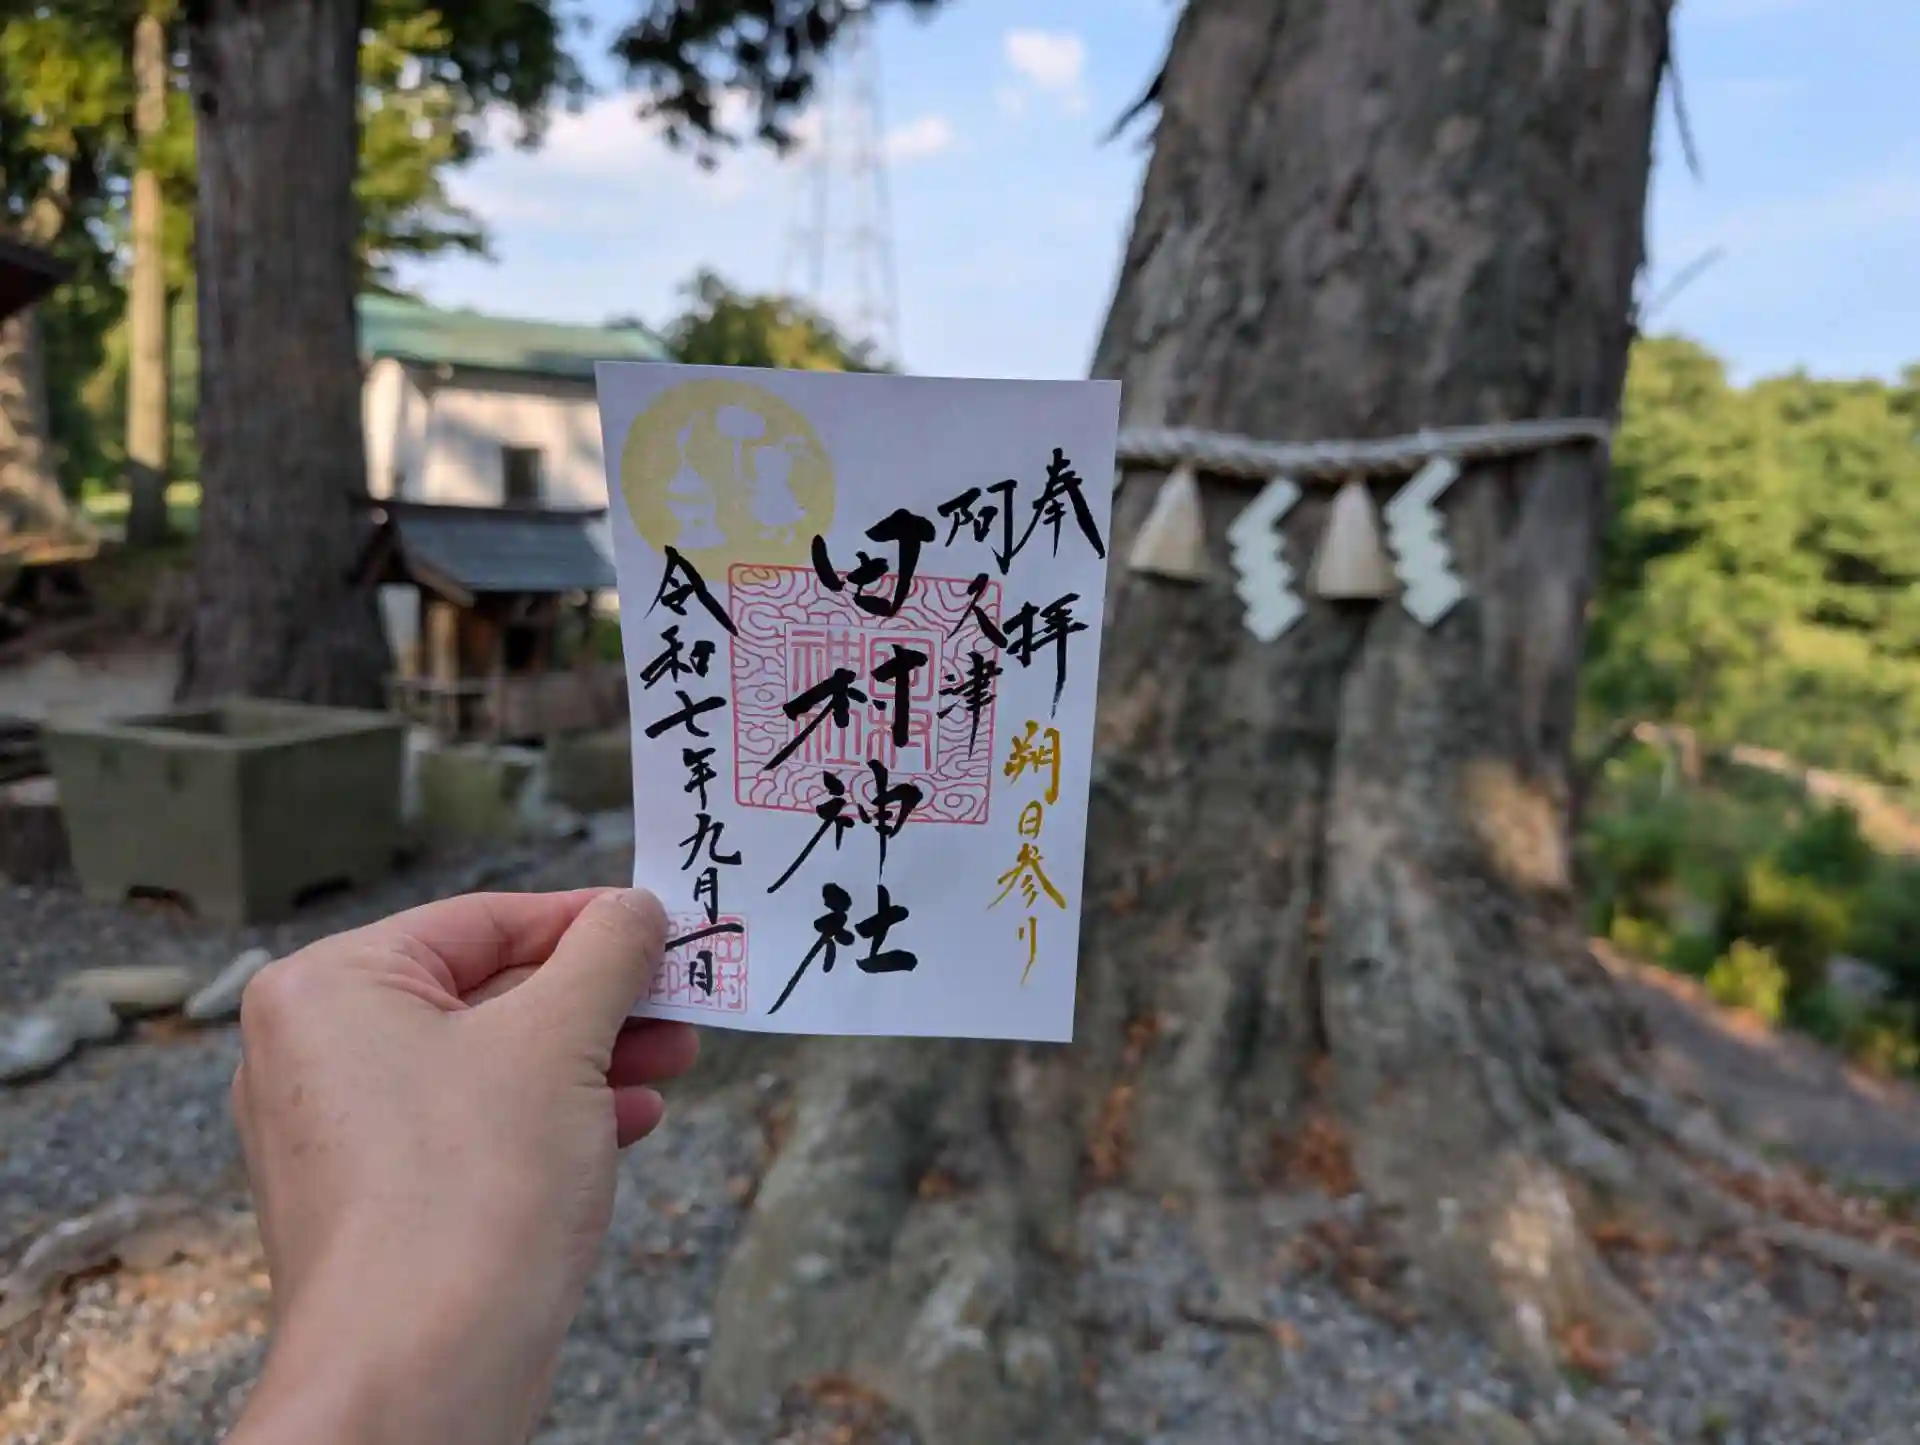 奉拝
朔日参り
阿久津
田村神社
田村神社
令和七年九月一日
田村
神社